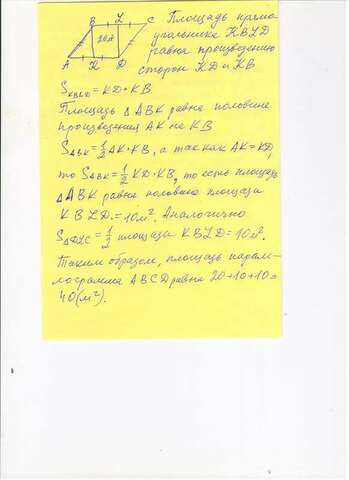 B L C
20м
A K D
Площадь прямо
угольника KBLD
равна произведению
сторон KD и KB
S KBLD = KD · KB
Площадь Δ ABK равна половине
произведения AK на KB
S ΔBK = 1/2 AK · KB, а так как AK = KD,
то S ΔBK = 1/2 KD · KB, то есть площадь
Δ ABK равна половине площади
KBLD. = 10 м². Аналогично
S ΔDLC = 1/2 площади KBLD = 10 м².
Таким образом, площадь парал–
лограмма ABCD равна 20+10+10=
40 (м²).